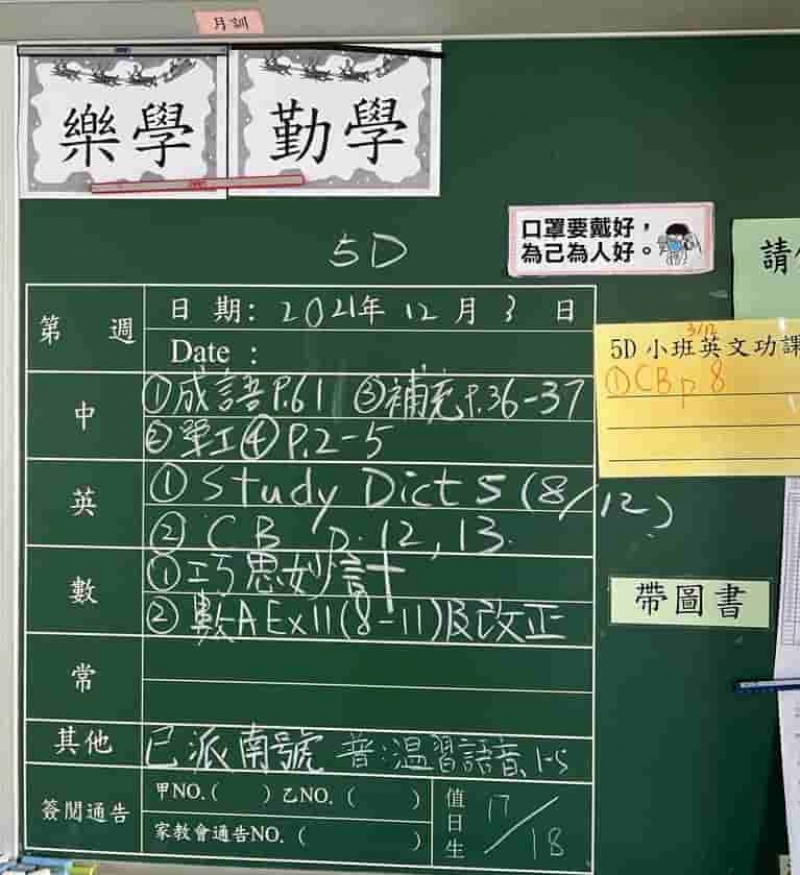 月訓
樂學
勤學
口罩要戴好，
為己為人好。
請
5D
第 週
日 期: 2021年 12 月 3 日
Date :
3/12
5D 小班英文功課
①CB p 8
中
①成語P.61 ③補充P.36-37
②單工④P.2-5
英
①Study Dict 5 (8/12)
② CB p.12, 13.
數
①巧思妙計
②數A Ex11(8-11)及改正
帶圖書
常
其他
已派 號 普:溫習語音1-5
簽閱通告
甲NO.( ) 乙NO. ( )
家教會通告NO. ( )
值日生
17/18